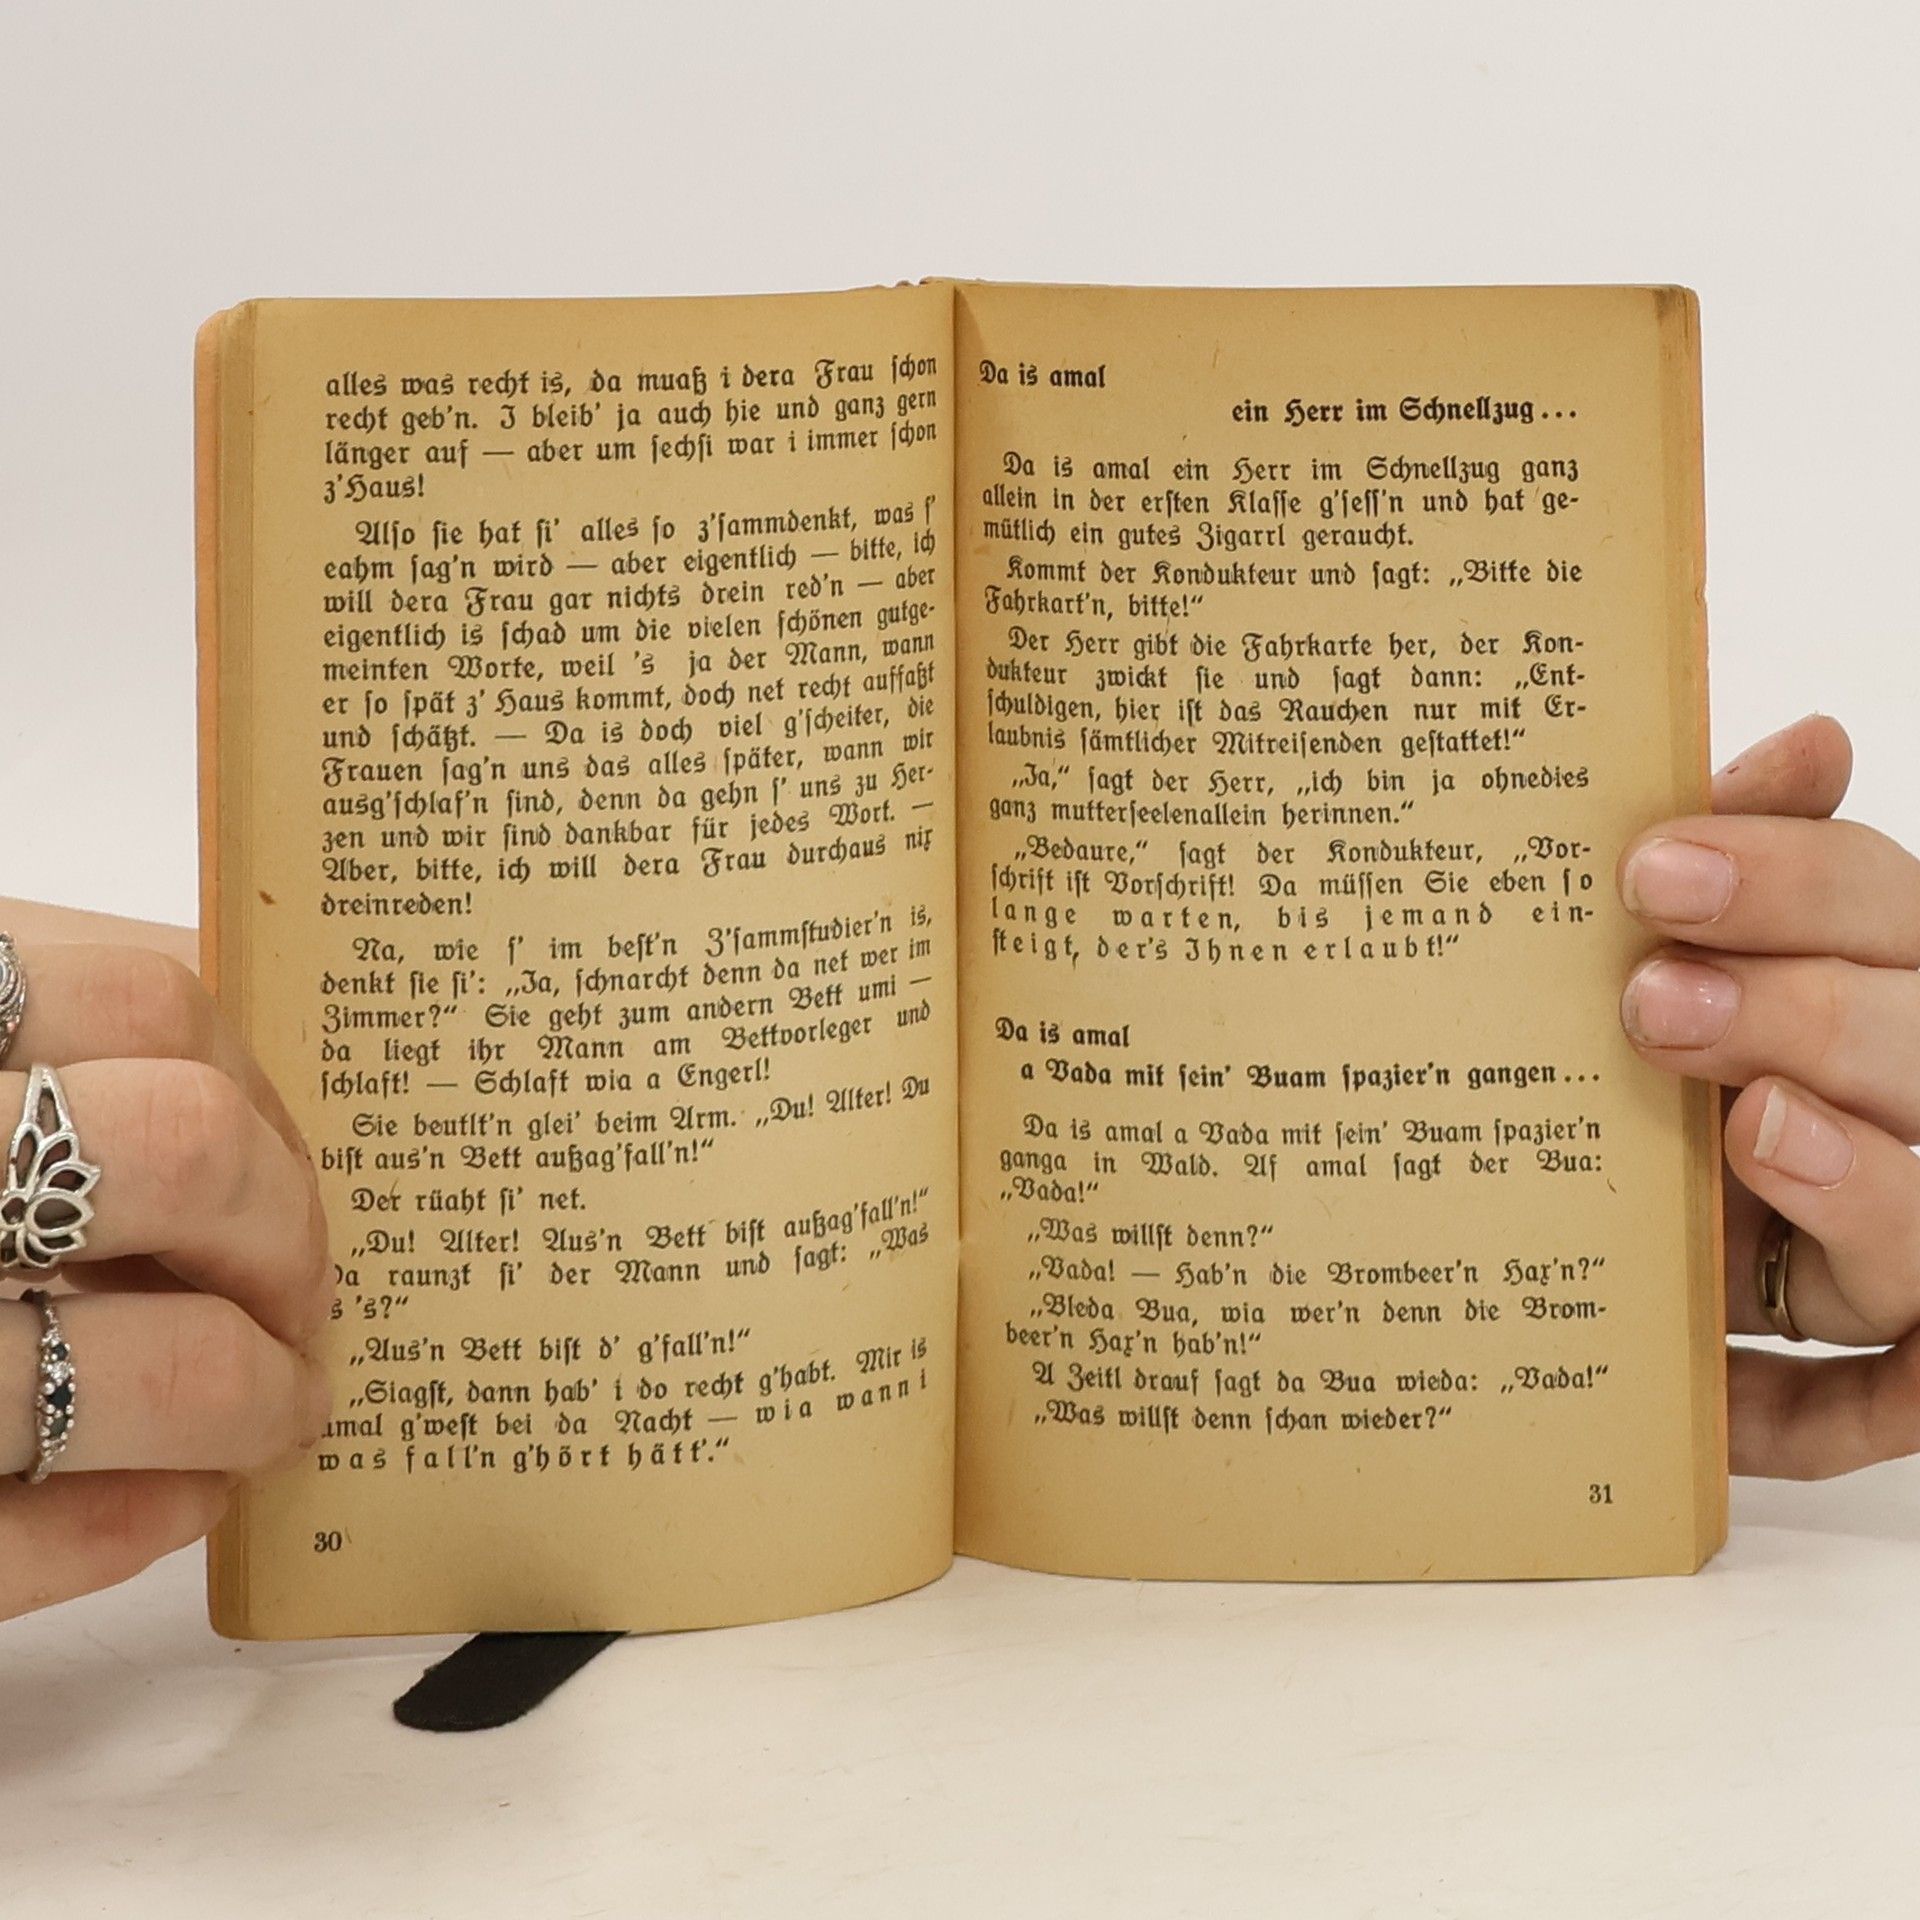 alles was recht is, da muaß i dera Frau schon
recht geb'n. I bleib' ja auch hie und ganz gern
länger auf — aber um sechsi war i immer schon
z'Haus!
Also sie hat si' alles so z'sammdenkt, was s'
eahm sag'n wird — aber eigentlich — bitte, ich
will dera Frau gar nichts drein red'n — aber
eigentlich is schad um die vielen schönen gutge-
meinten Worte, weil 's ja der Mann, wann
er so spät z' Haus kommt, doch net recht auffaßt
und schätzt. — Da is doch viel g'scheiter, die
Frauen sag'n uns das alles später, wann wir
ausg'schlaf'n sind, denn da gehn s' uns zu Her-
zen und wir sind dankbar für jedes Wort. —
Aber, bitte, ich will dera Frau durchaus nix
dreinreden!
Na, wie s' im best'n Z'sammstudier'n is,
denkt sie si': „Ja, schnarcht denn da net wer im
Zimmer?“ Sie geht zum andern Bett umi —
da liegt ihr Mann am Bettvorleger und
schlaft! — Schlaft wia a Engerl!
Sie beutlt'n glei' beim Arm. „Du! Alter! Du
bist aus'n Bett außag'fall'n!“
Der rüaht si' net.
„Du! Alter! Aus'n Bett bist außag'fall'n!“
Da raunzt si' der Mann und sagt: „Was
's?“
„Aus'n Bett bist d' g'fall'n!“
„Siagst, dann hab' i do recht g'habt. Mir is
amal g'west bei da Nacht — wia wann i
was fall'n g'hört hätt'.“
30
Da is amal
ein Herr im Schnellzug...
Da is amal ein Herr im Schnellzug ganz
allein in der ersten Klasse g'sess'n und hat ge-
mütlich ein gutes Zigarrl geraucht.
Kommt der Kondukteur und sagt: „Bitte die
Fahrkart'n, bitte!“
Der Herr gibt die Fahrkarte her, der Kon-
dukteur zwickt sie und sagt dann: „Ent-
schuldigen, hier ist das Rauchen nur mit Er-
laubnis sämtlicher Mitreisenden gestattet!“
„Ja,“ sagt der Herr, „ich bin ja ohnedies
ganz mutterseelenallein herinnen.“
„Bedaure,“ sagt der Kondukteur, „Vor-
schrift ist Vorschrift! Da müssen Sie eben so
lange warten, bis jemand ein-
steigt, der's Ihnen erlaubt!“
Da is amal
a Vada mit sein' Buam spazier'n gangen...
Da is amal a Vada mit sein' Buam spazier'n
ganga in Wald. Af amal sagt der Bua:
„Vada!“
„Was willst denn?“
„Vada! — Hab'n die Brombeer'n Hax'n?“
„Bleda Bua, wia wer'n denn die Brom-
beer'n Hax'n hab'n!“
A Zeitl drauf sagt da Bua wieda: „Vada!“
„Was willst denn schan wieder?“
31